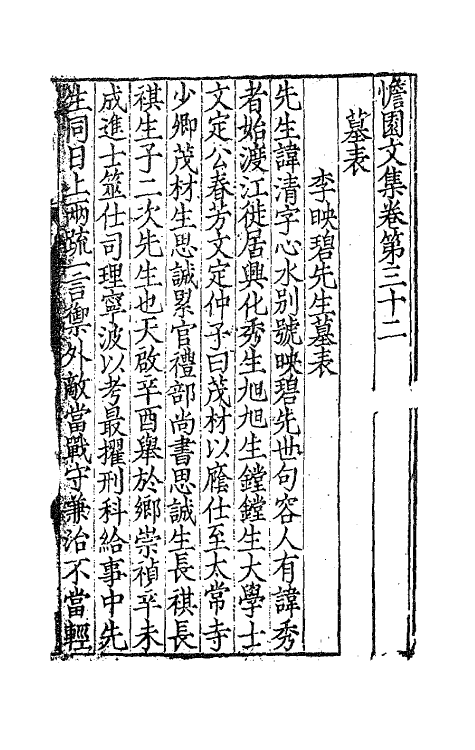 憺園文集卷第三十二
墓表
李映碧先生墓表
先生諱清字心水别號映碧先世句容人有諱秀
者始渡江徙居興化秀生旭旭生鏜鏜生大學士
文定公春芳文定仲子曰茂材以廕仕至太常寺
少卿茂材生思誠累官禮部尚書思誠生長祺長
祺生子二次先生也天啟辛酉舉於鄉崇禎辛未
成進士筮仕司理寧波以考最擢刑科給事中先
生同日上兩疏一言禦外敵當戰守兼治不當輕